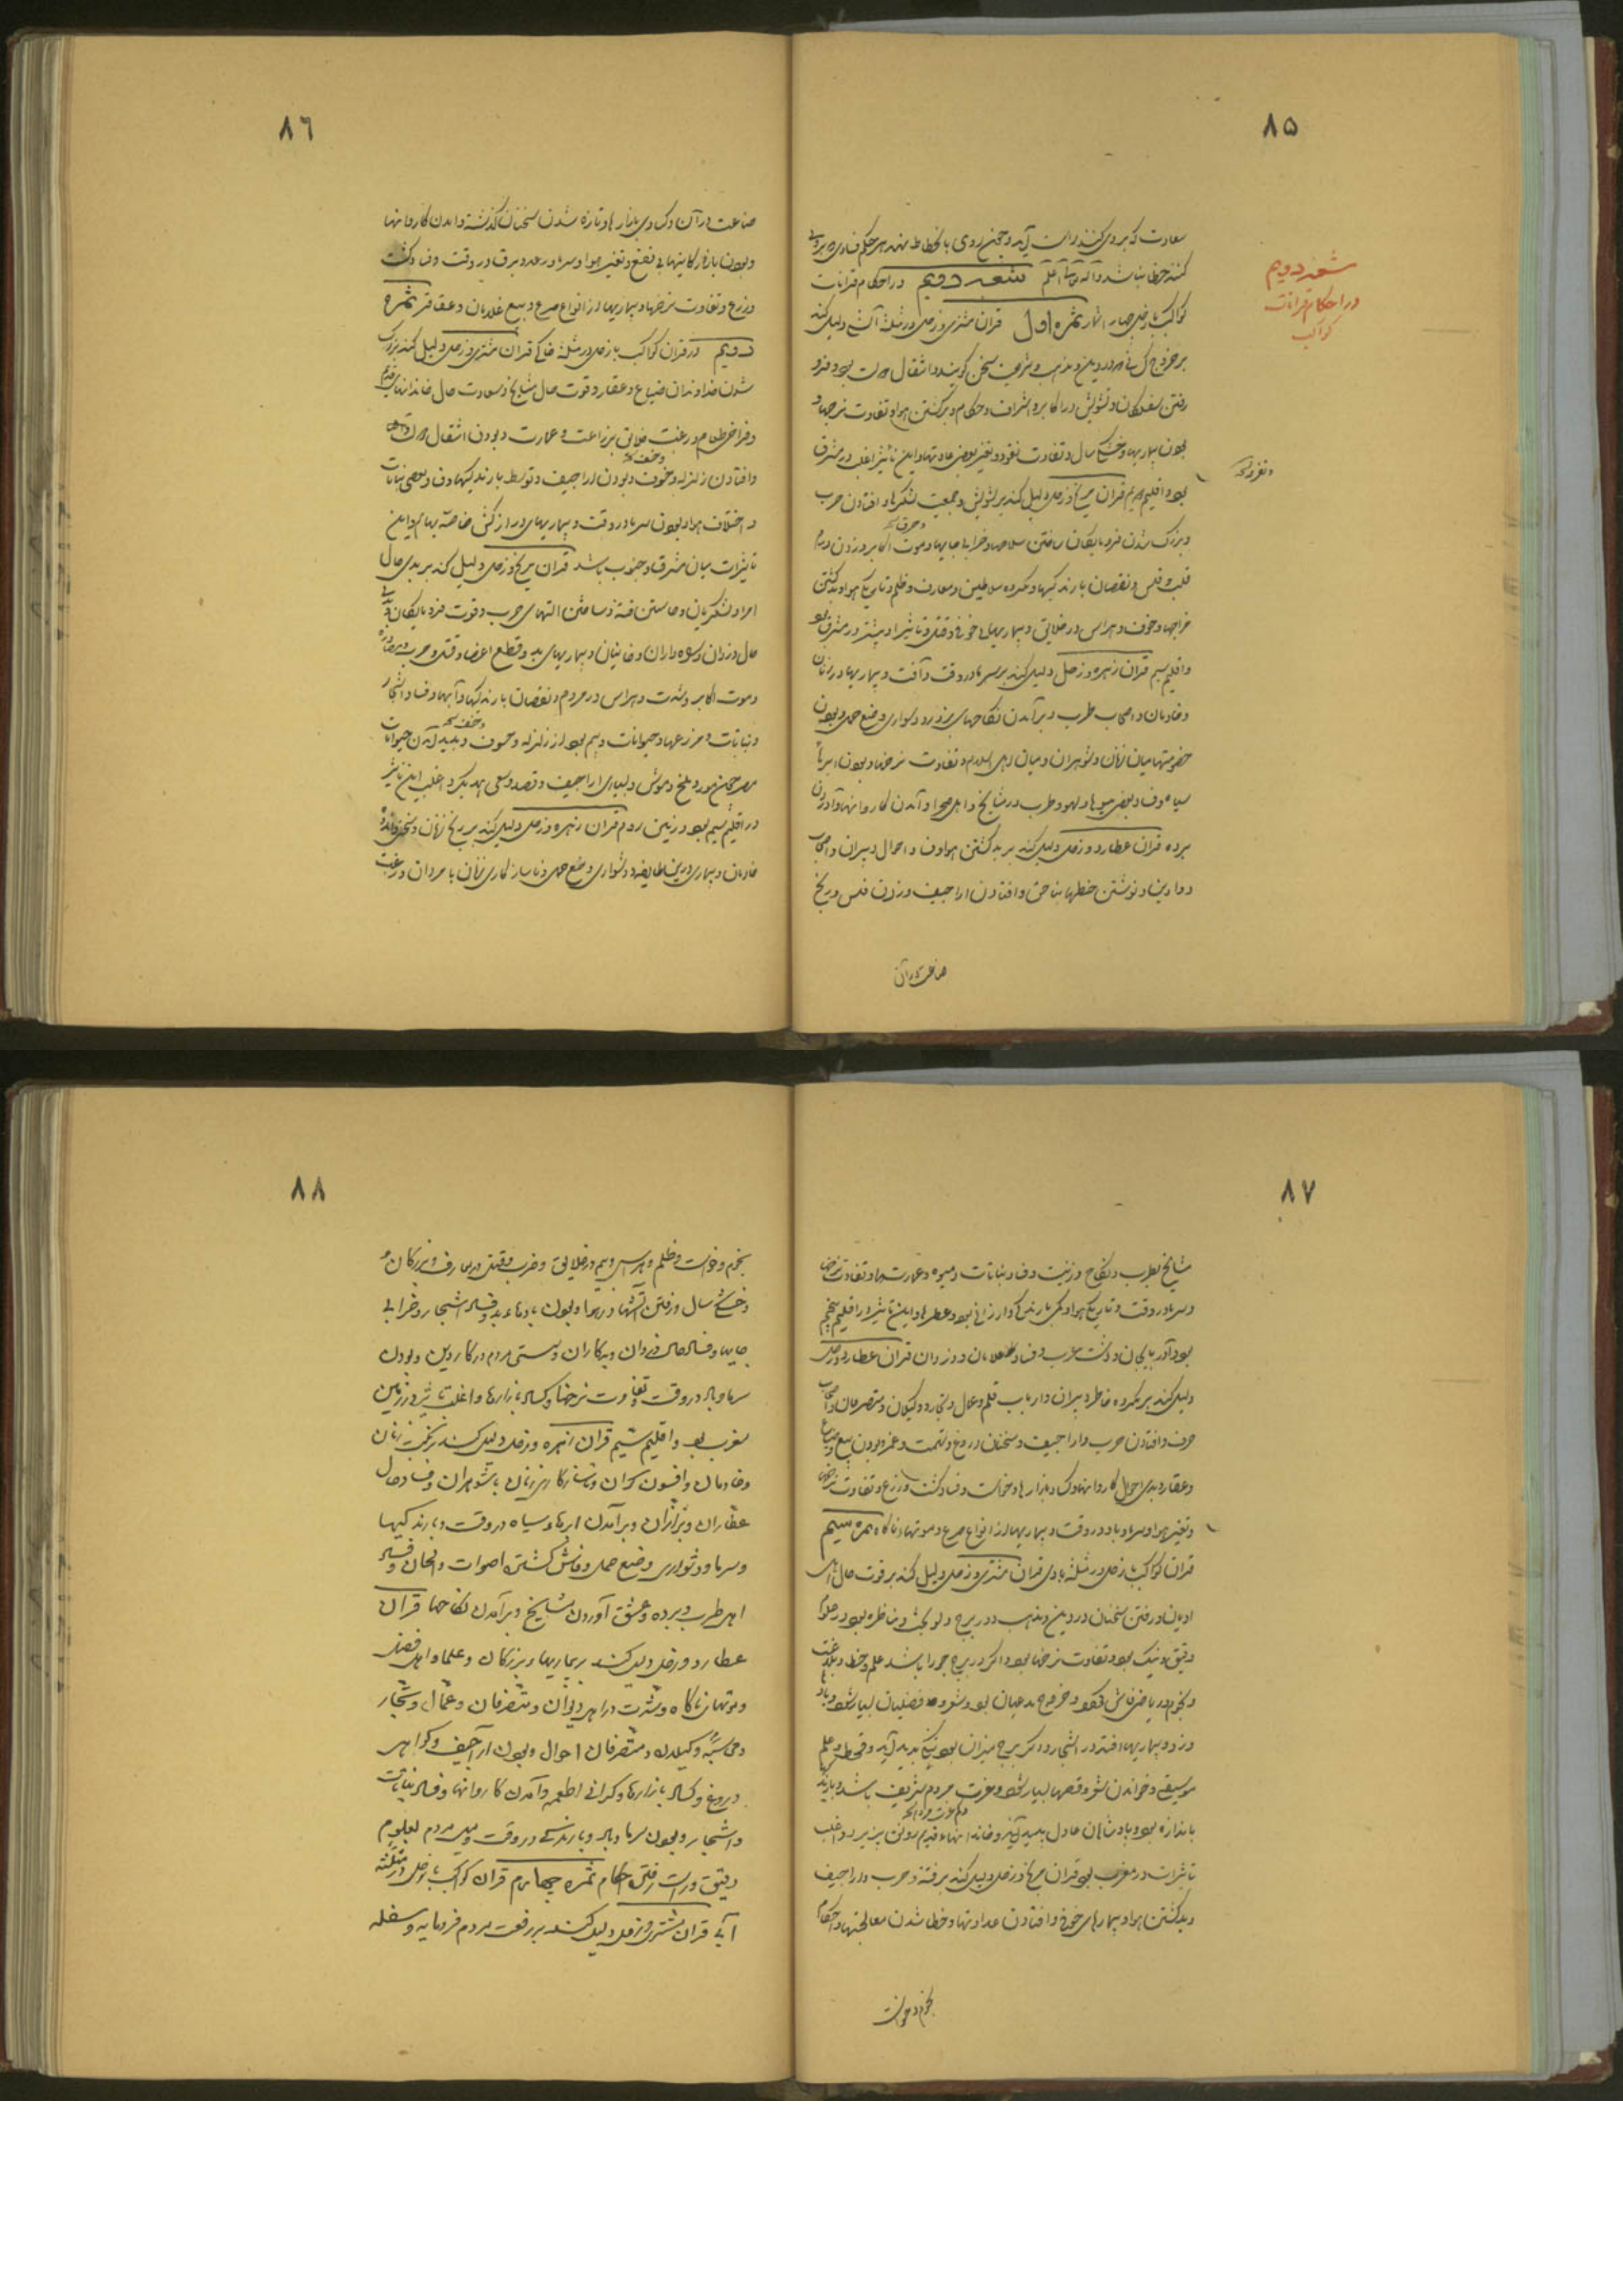 ٨٥
سعادت که بروی کنند راست آید و همچنین روی بانحطاط نهد هر حکم فسادی که بروی
کنند خطا نباشد والله تعالی اعلم شعبه دویم در احکام قرانات
کواکب با زحل چهار اثمار ثمره اول قران مشتری و زحل در مثلثه آتشی دلیل کند
بر خروج کسانی که در دین و مذهب و شریعت سخن گویند و انتقال دولت بود و فرو
رفتن سفلگان و تشویش در اکابر و اشراف و حکام و برگشتن هوا و تفاوت نرخها و
بودن بیماریها و خشکی سال و تفاوت نقود و تغیر بعضی عادتها و این تاثیر اغلب در مشرق
بود و اقلیم قران مریخ و زحل دلیل کند بر تشویش و جمعیت لشکرها و افتادن حرب
و بزرگ شدن فرومایگان ساختن سلاحها و خرابی جایها و موت اکابر و زدن درم
قلب و فلس و نقصان بارندگیها و مکروه سلاطین و معارف و ظلم و تاریکی هوا و بدگشتن
مزاجها و خوف و هراس در خلایق و بیماریهای خونی و قتل و تاثیر او بیشتر در مشرق بود
و اقلیم سیم قران زهره و زحل دلیل کند بر سرما در وقت و آفت و بیماریها در زنان
و خادمان و اصحاب طرب و برآمدن نکاحهای بزور و دشواری وضع حمل و بودن
خصومتها میان زنان و شوهران و میان اهل اسلام و تفاوت نرخها و بودن ابرهای
سیاه و فساد بعضی میوها و لهو و طرب در مشایخ و اهل صحرا و آمدن کاروانها و آوردن
برده قران عطارد و زحل دلیل کند بر بد گشتن هوا و فساد احوال دبیران و اصحاب
دواوین و نوشتن خطها بناحق و افتادن اراجیف و زدن فلس و ریخ
صناعت در آن
شعبه دویم
در احکام قرانات
کواکب
٨٦
صناعت در آن و کسادی بازارها و تازه شدن سخنان گذشته و آمدن کاروانها
و بودن بازارگانیها بی نفع و تغیر هوا و سرما و رعد و برق در وقت و فساد کشت
و زرع و تفاوت نرخها و بیماریها از انواع صرع و بیع غلامان و عقاقیر ثمره
دویم در قران کواکب با زحل در مثلثه خاکی قران مشتری و زحل دلیل کند بزرگ
شدن خداوندان ضیاع و عقار و قوت حال مشایخ و سعادت حال خاندانهای قدیم
و فراخی طعام و رغبت خلایق بزراعت و عمارت و بودن انتقال
و افتادن زلزله و خوف و بودن اراجیف و توسط بارندگیها و فساد بعضی نباتات
و اختلاف هوا و بودن سرما در وقت و بیماریهای دراز کش خاصه بهایم و این
تاثیرات میان مشرق و جنوب باشد قران مریخ و زحل دلیل کند بر بدی حال
امرا و لشکریان و خاستن فتنه و ساختن التهای حرب و قوت فرومایگان و
حال دزدان و خاینان و بیماریهای بد و قطع اعضا و قتل و حرب و
و موت اکابر و شدت و هراس در مردم و نقصان بارندگیها و آبها و فساد اشجار
و نباتات و مزرعها و حیوانات و بیم بود از زلزله و خسوف و پدید آمدن حیوانات
مور و ملخ و موش و بسیاری اراجیف و قصد و سعی یکدیگر و اغلب این تاثیر
در اقلیم سیم بود و زمین روم قران زهره و زحل دلیل کند بر رنج زنان و
خادمان و بیماری درین طایفه و دشواری وضع حمل و ناسازگاری زنان با مردان و رغبت
٨٧
مشایخ بطرب و نکاح و زینت و فساد نباتات و میوه و عمارت و تفاوت نرخها
و سرما در وقت و تاریکی هوا و کمی بارندگی و ارزانی بود و عطرها و این تاثیر در اقلیم پنجم
بود و آذربایجان و دشت عرب و فساد غلامان و دزدان قران عطارد و زحل
دلیل کند بر مکروه خاطر دبیران و ارباب قلم و عمال و تجار و وکیلان و متصرفان و اصحاب
حرف و افتادن حرب و اراجیف و سخنان دروغ و تهمت و غمز و بودن بیع ضیاع
و عقار و بدی احوال کاروانها و کساد بازارها و خواست و فساد کشت و زرع و تفاوت نرخها
و تغیر هوا و سرما و باد در وقت و بیماریها از انواع صرع و موتهای ناگاه ثمره سیم
قران کواکب با زحل در مثلثه بادی قران مشتری و زحل دلیل کند بر قوت حال اهل
ادیان و رفتن سخنان در دین و مذهب و در برج دلو بحث و مناظره بود در علوم
دقیق و نیک بود و تفاوت نرخها بود و اگر در برج جوزا باشد علم و خط و بلاغت
و نجوم و ریاضی فاش شود و خروج مدعیان بود و شعر و فضلیات بسیار شود و باد
وزد و بیماریها افتد در اشجار و اگر برج میزان بود پدید آید و قحط و علم
موسیقی و خواندن شعر و قصها بسیار شود و عزت مردم شریف باشد و بارندگی
باندازه بود و پادشاهان عادل پدید آیند و خاندانهای قدیم رونق پذیرد و اغلب
تاثیرات در مغرب بود قران مریخ و زحل دلیل کند بر فتنه و حرب و اراجیف
و بد گشتن هوا و بیماریهای خونی و افتادن عداوتها و خطا شدن معالجتها و احکام
نجوم و خواست
٨٨
نجوم و خواست و ظلم و هراس و بیم در خلایق و ضرب و قتل در معارف و بزرگان و
و خشکی سال و رفتن آتشها در هوا و بودن بادهاء بد و فساد اشجار و خرابی
جایها و فساد حال دزدان و بدکاران و سستی مردم در کار دین و بودن
سرما و باد در وقت و تفاوت نرخها و کساد بازارها و اغلب تاثیر در زمین
مغرب بود و اقلیم ششم قران زهره و زحل دلیل کند بر نکبت زنان
و خادمان و افسون گران و ناسازگاری زنان با شوهران و فساد حال
عطاران و بزازان و برآمدن ابرهاء سیاه در وقت و بارندگیها
و سرما و دشواری وضع حمل و فاش گشتن اصوات و الحان و فساد
اهل طرب و برده و عشق آوردن مشایخ و برآمدن نکاحها قران
عطارد و زحل دلیل کند بیماریهاء بزرگان و علما و اهل فضل
و موتهای ناگاه و شدت در اهل دیوان و متصرفان و عمال و تجار
و محاسبه وکیلان و متصرفان احوال و بودن اراجیف و گواهی
دروغ و کساد بازارها و گرانی اطعمه و آمدن کاروانها و فساد نباتات
و اشجار و بودن سرما و باد و بارندگی در وقت و میل مردم بعلوم
دقیق و راست رفتن احکام ثمره چهارم قران کواکب با زحل در مثلثه
آبی قران مشتری و زحل دلیل کند بر رفعت مردم فرومایه و سفله